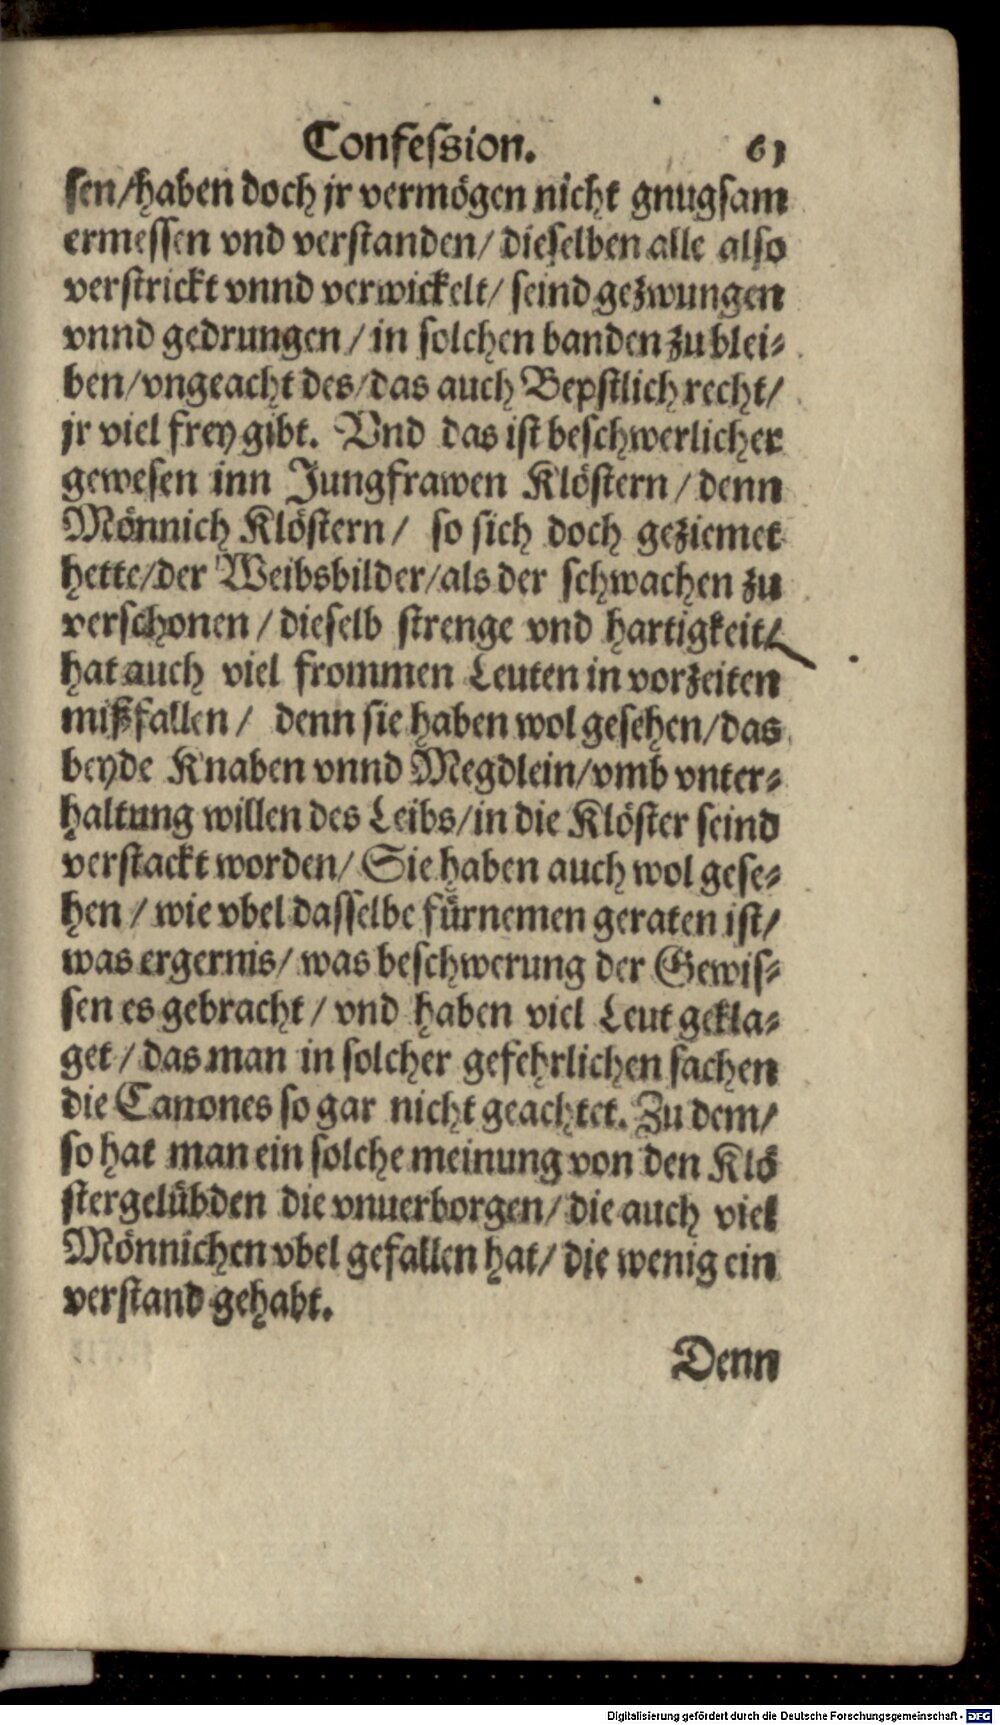 Confession. 61
sen/haben doch jr vermögen nicht gnugsam
ermessen vnd verstanden/ dieselben alle also
verstrickt vnnd verwickelt/ seind gezwungen
vnnd gedrungen/ in solchen banden zu blei-
ben/vngeacht des/das auch Bepstlich recht/
jr viel frey gibt. Vnd das ist beschwerlicher
gewesen inn Jungfrawen Klöstern/ denn
Mönnich Klöstern/ so sich doch geziemet
hette/der Weibsbilder/als der schwachen zu
verschonen/ dieselb strenge vnd hartigkeit/
hat auch viel frommen Leuten in vorzeiten
mißfallen/ denn sie haben wol gesehen/das
beyde Knaben vnnd Megdlein/vmb vnter-
haltung willen des Leibs/in die Klöster seind
verstackt worden/ Sie haben auch wol gese-
hen/ wie vbel dasselbe fürnemen geraten ist/
was ergernis/ was beschwerung der Gewis-
sen es gebracht/ vnd haben viel Leut gekla-
get/ das man in solcher gefehrlichen sachen
die Canones so gar nicht geachtet. Zu dem/
so hat man ein solche meinung von den Klö
stergelübden die vnuerborgen/ die auch viel
Mönnichen vbel gefallen hat/ die wenig ein
verstand gehabt.
Denn
Digitalisierung gefördert durch die Deutsche Forschungsgemeinschaft - DFG